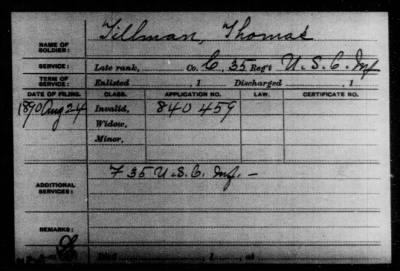 NAME OF SOLDIER: Tillman, Thomas
SERVICE: Late rank, Co. C, 35 Reg't U.S.C. Inf
TERM OF SERVICE: Enlisted 1 Discharged , 1
DATE OF FILING. CLASS. APPLICATION NO. LAW. CERTIFICATE NO.
1890 Aug 24 Invalid, 840459
Widow,
Minor,
ADDITIONAL SERVICES: F 35 U.S.C. Inf. -
REMARKS:
Died , 1 , at